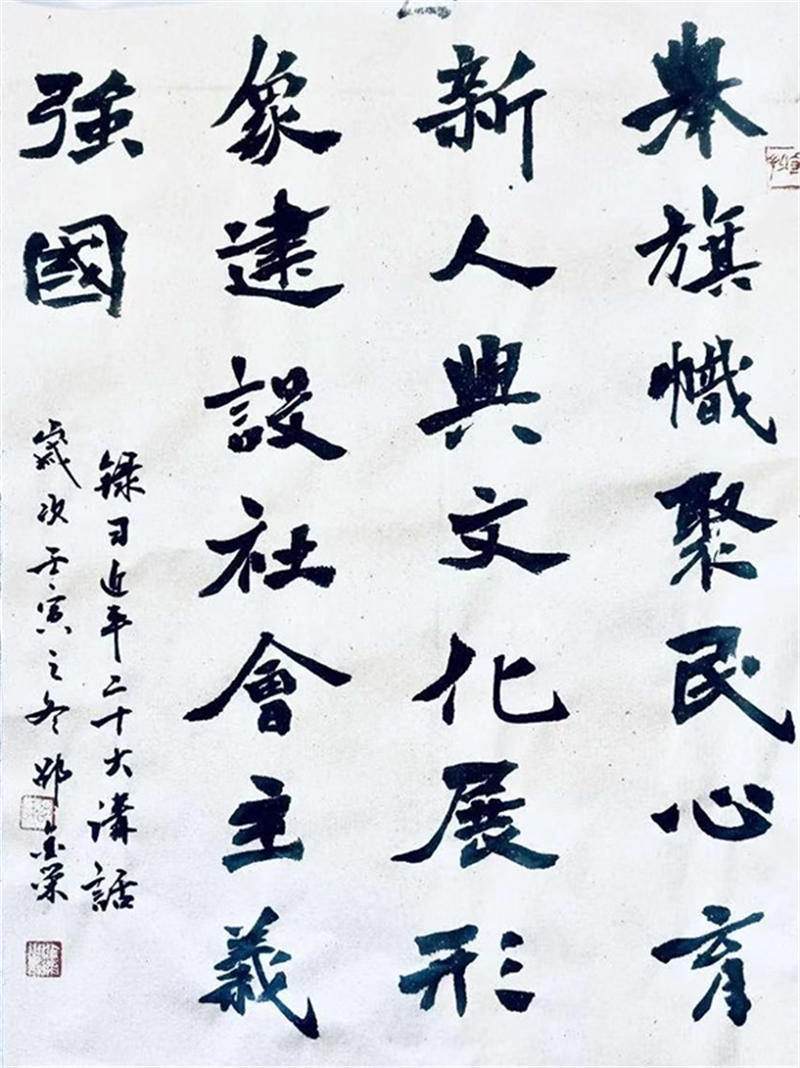 舉旗幟聚民心育
新人興文化展形
象建設社會主義
強國
録习近平二十大講話
歲次壬寅之冬邵金荣